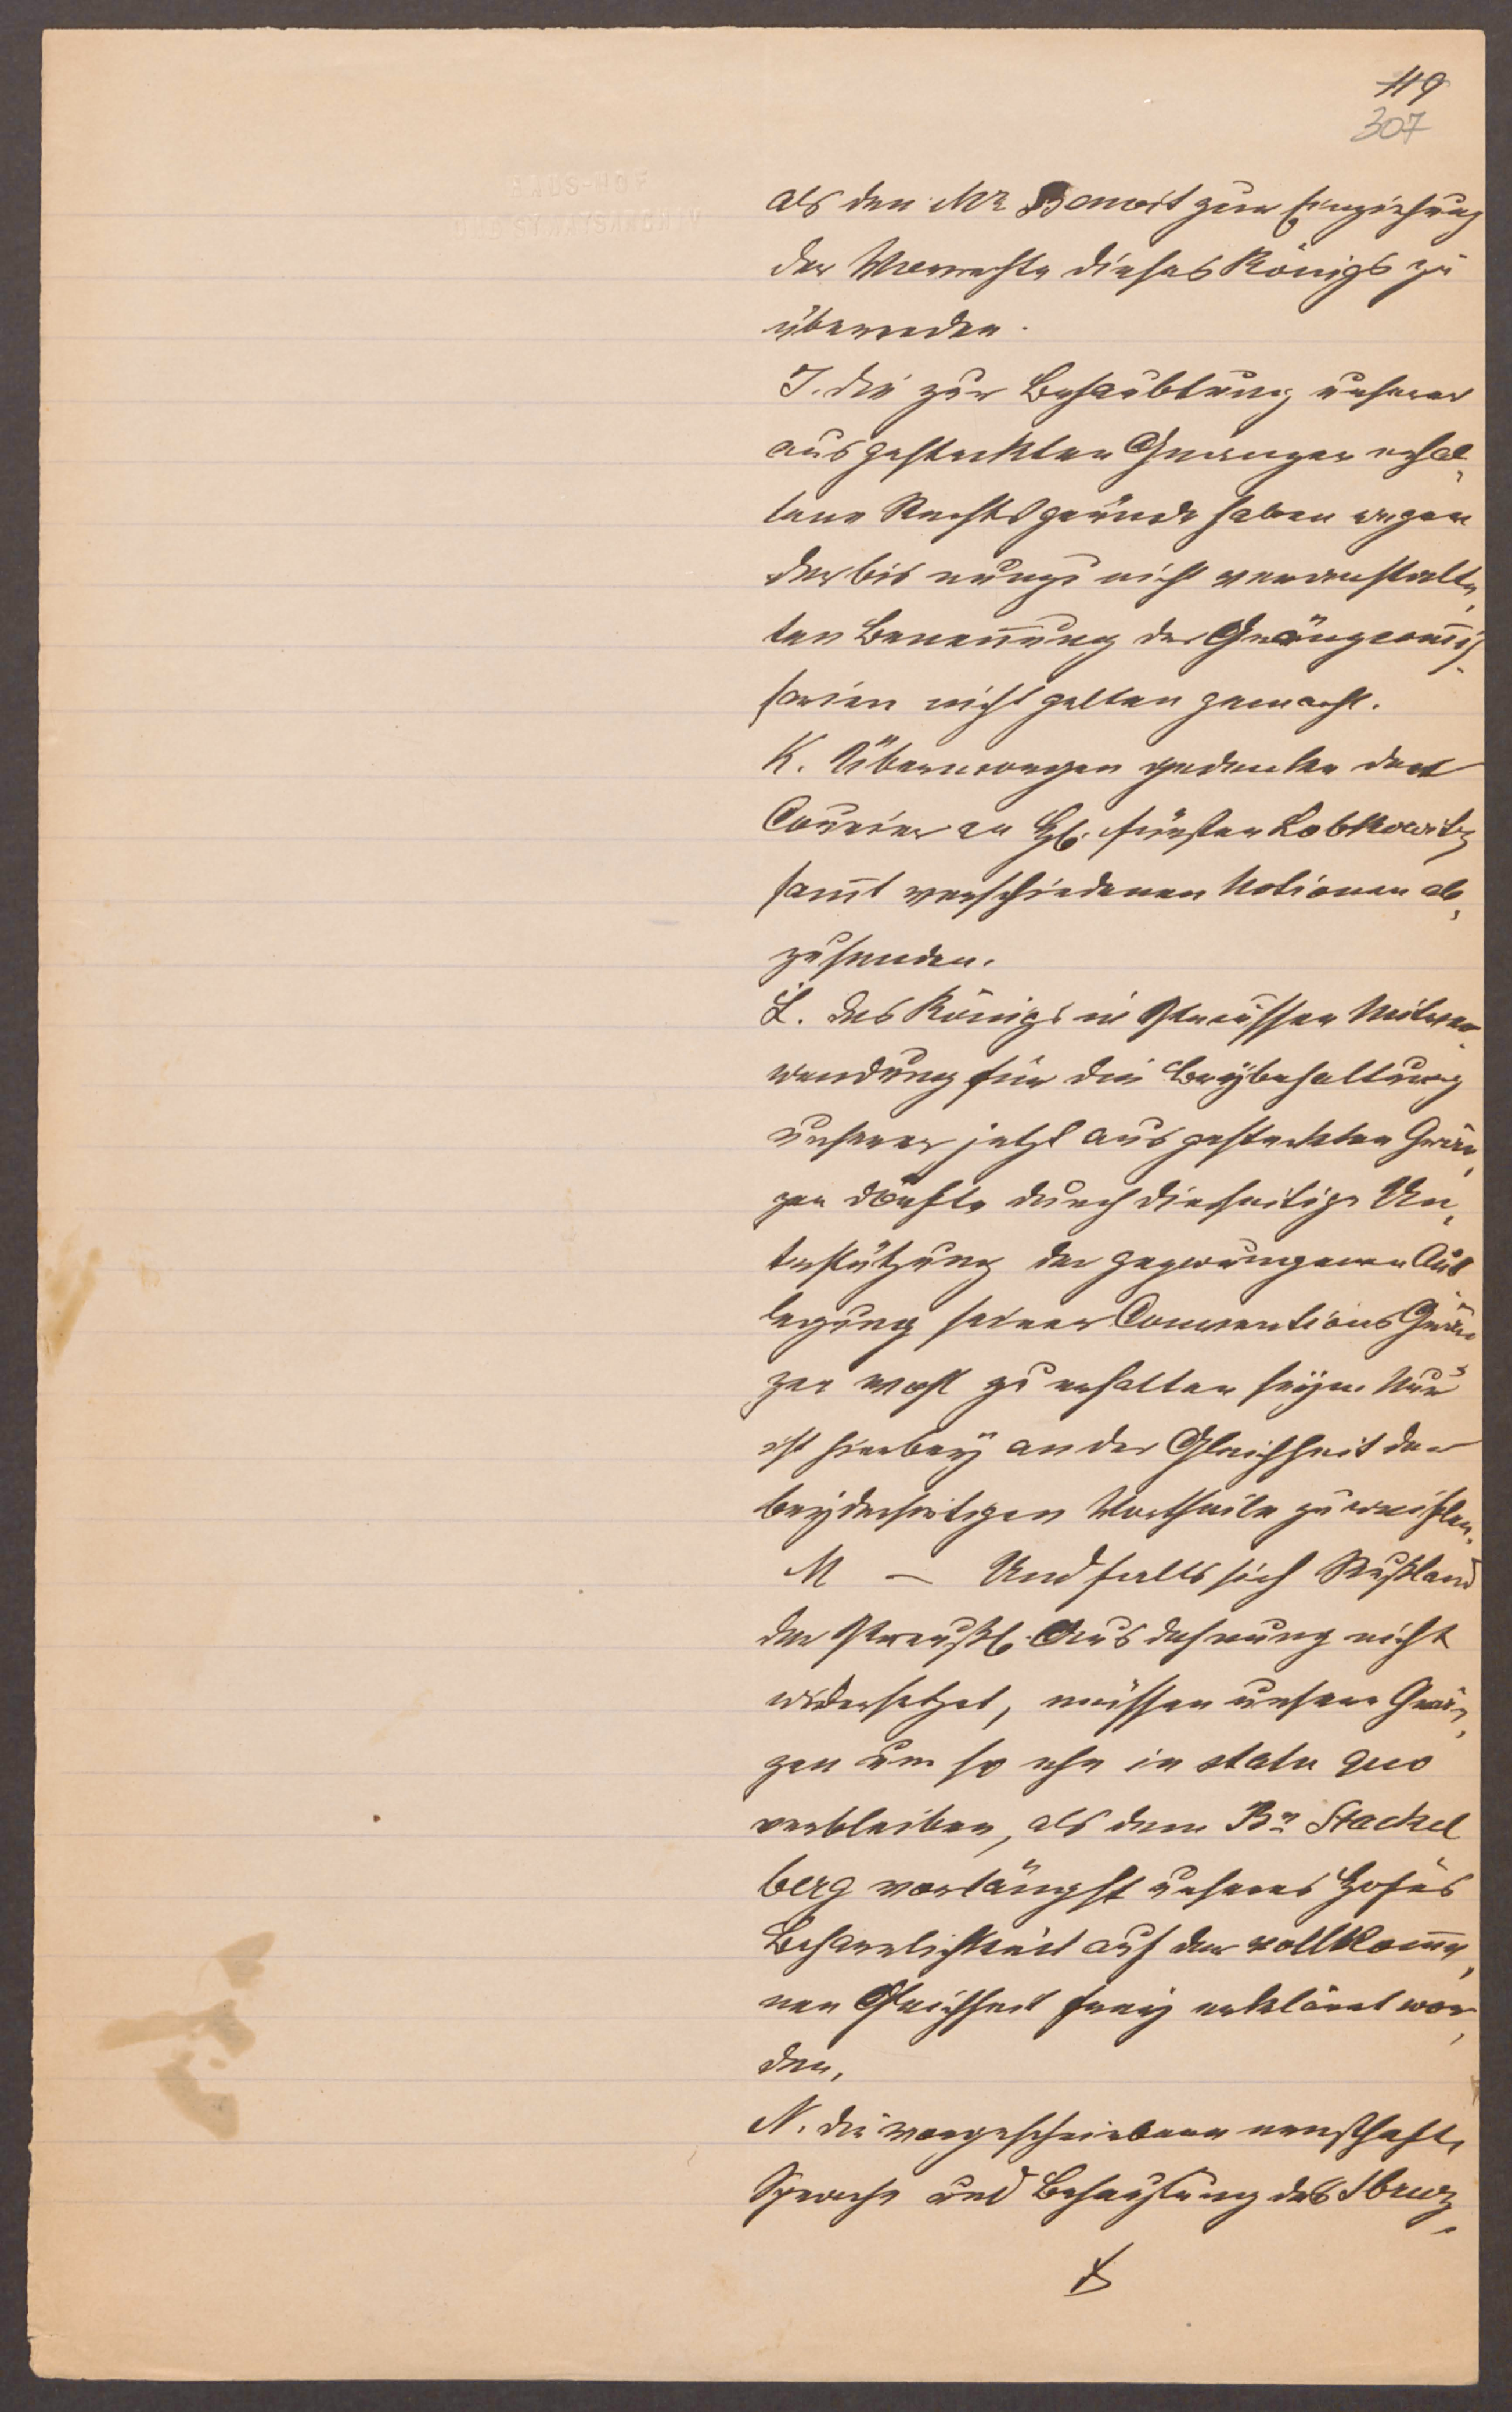 119
307
HAUS-HOF
UND STAATSARCHIV
als den Mr Benoit zur Einziehung
der Vorrechte dieses Königs zu
überreden.
I. die zur Behaubtung unserer
ausgesteckten Gränzen erhal¬
tene Rechtsgründe haben wegen
der bis nunzu nicht veranstalte¬
ten Benennung der Gränzcom̅is¬
sarien nicht gelten gemacht.
K. Übermorgen gedenke den
Courier an H. Fürsten Lobkowitz
sam̅t verschiedenen Notionen ab¬
zusenden.
L. des Königs in Preüssen Mitver¬
wendung für die Beÿbehaltung
unserer jetzt ausgesteckten Grän¬
zen dörfte durch diesseitige Un¬
terstützung der gezwungenen Aus
legung seiner Conventions Grän
zen wohl zu erhalten seÿn. Nur
ist hierbeÿ an der Gleichheit der
beÿderseitigen Vortheile zu zweiflen.
M — Und falls sich Rußland
der Preußl. Ausdehnung nicht
widersetzet, müssen unsere Grän¬
zen um so ehe in statu quo
verbleiben, als dem Bn Stackel
berg vorlängst unseres Hofes
Beharrlichkeit auf der vollkom̅e¬
nen Gleichheit freÿ erkläret wor¬
den,
N. die vorgeschriebene ernsthafte
Sprache und Behauptung des Sbruz¬